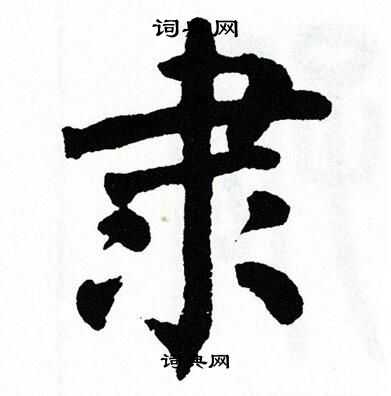 词典网
隶
词典网